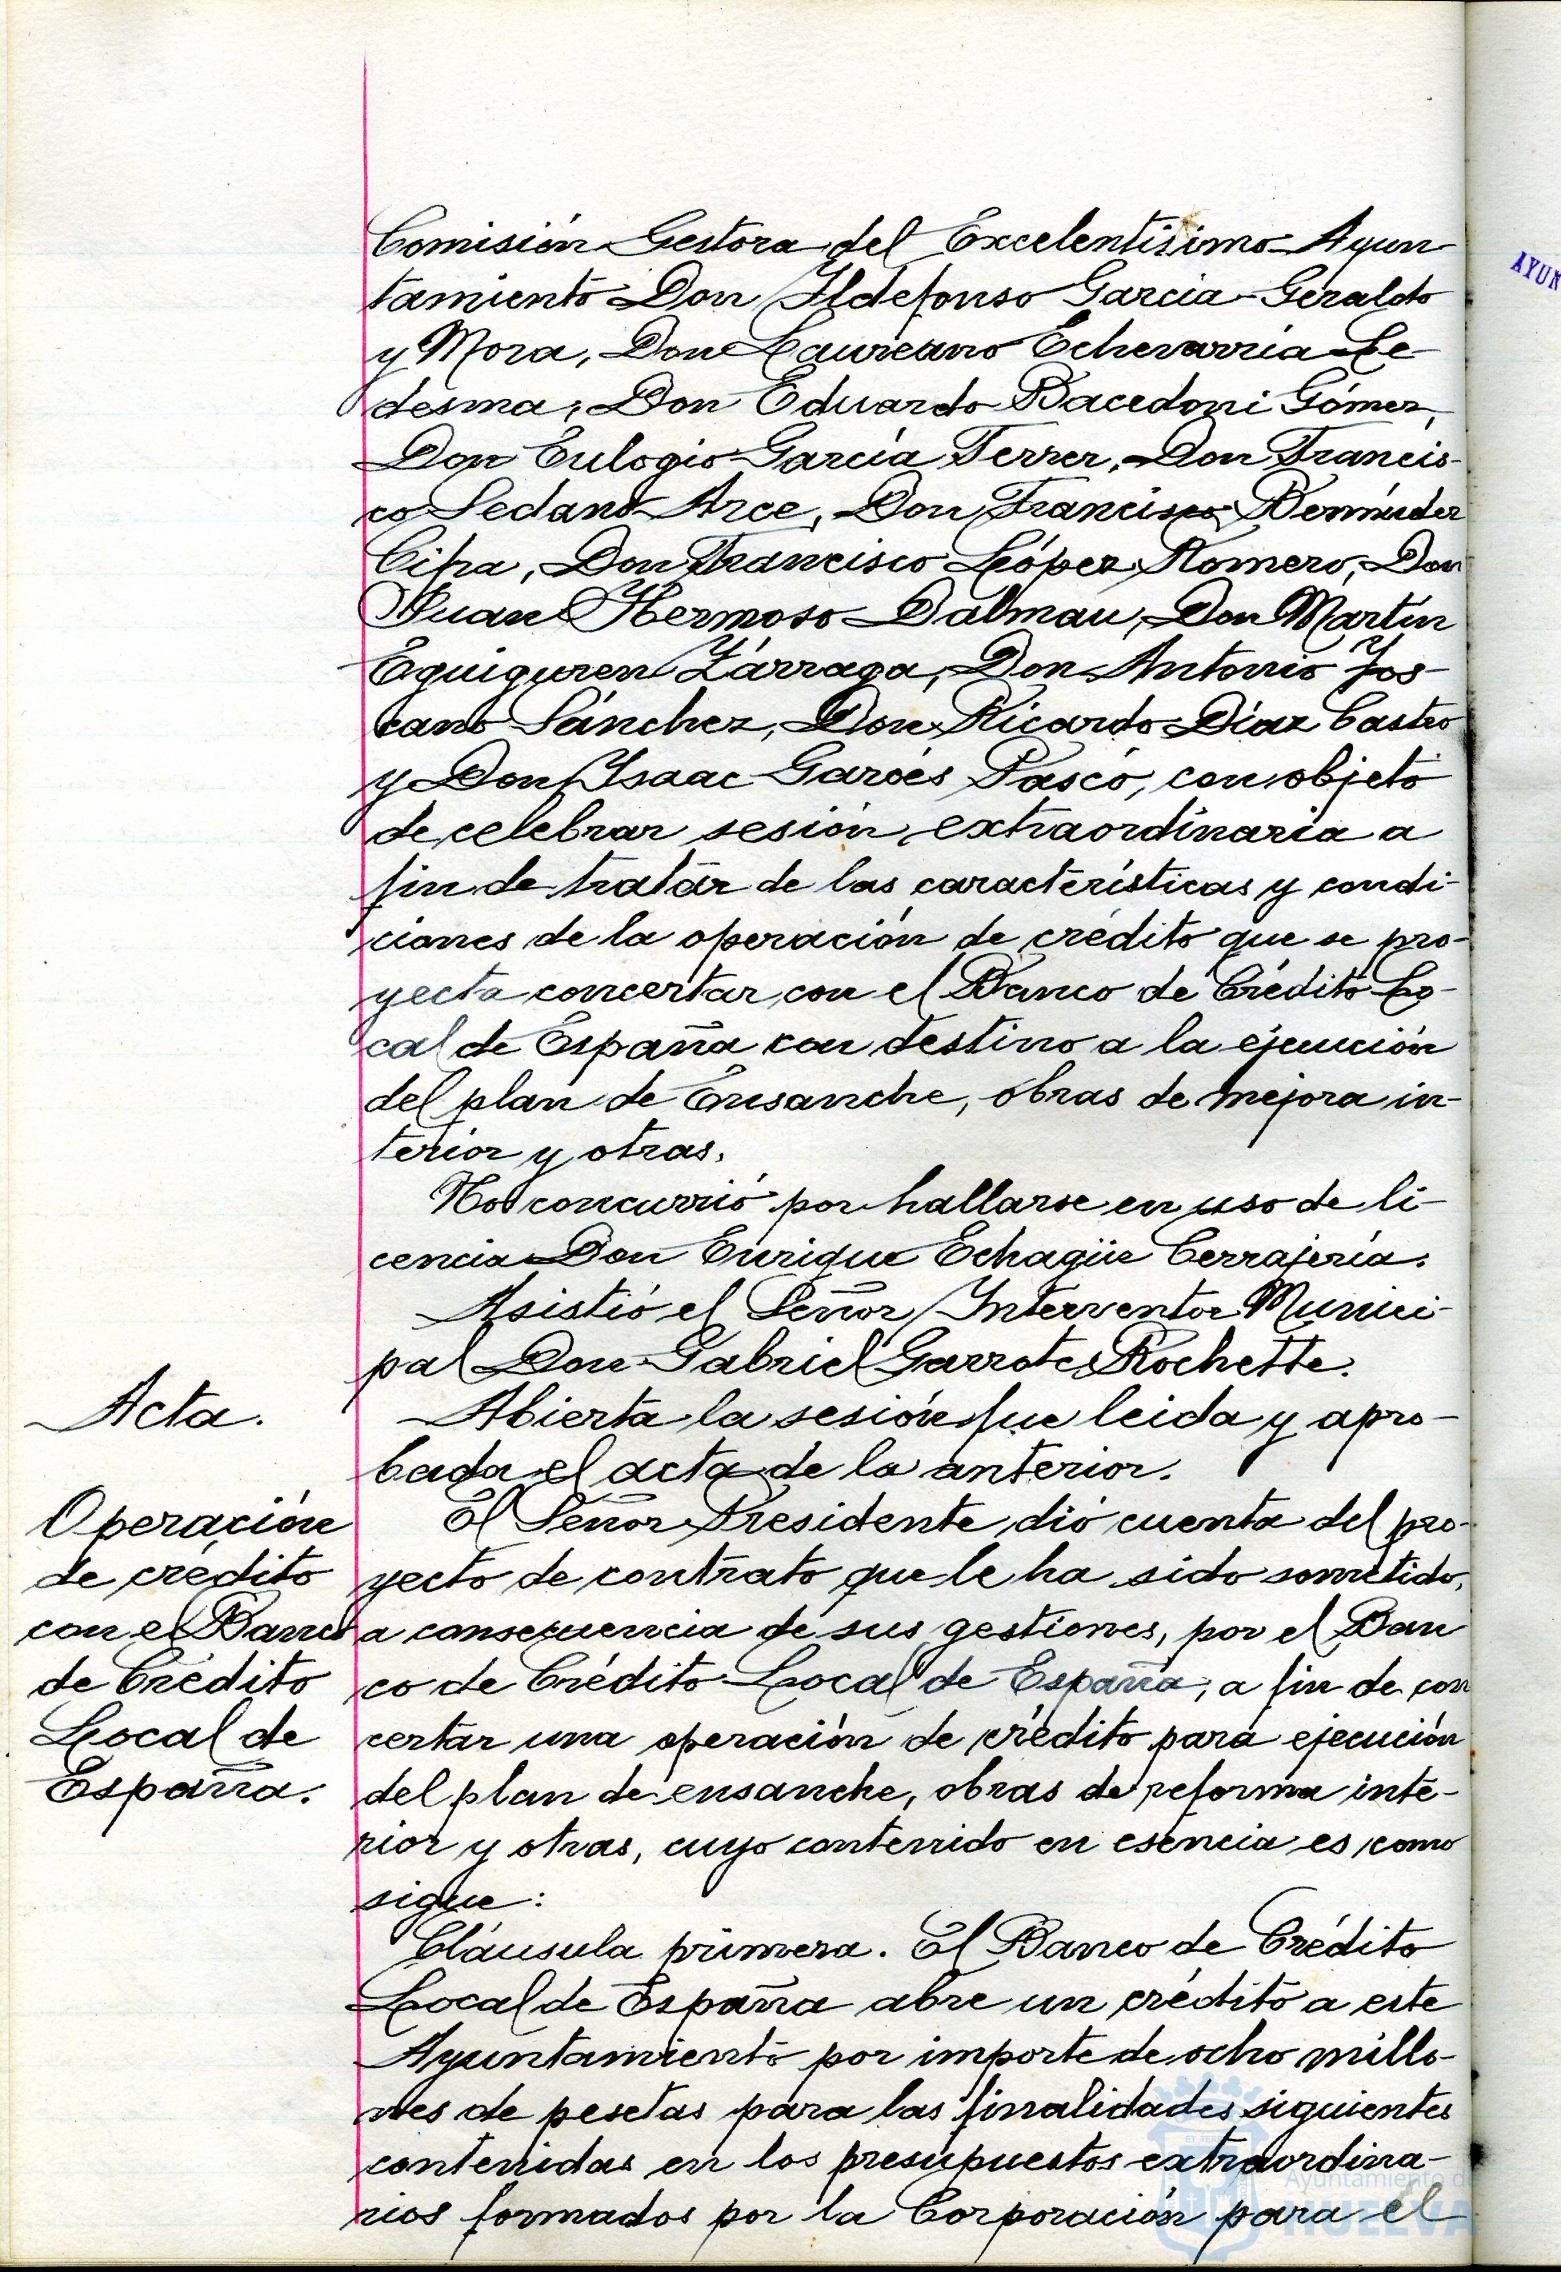 Comisión Gestora del Excelentísimo Ayun
tamiento Don Ildefonso García-Geraldo
y Mora, Don Laureano Echevarría Le-
desma, Don Eduardo Bacedoni Gómez,
Don Eulogio García Ferrer, Don Francis-
co Sedano Arce, Don Francisco Bermúdez
Cifra, Don Francisco López Romero, Don
Juan Hermoso Dalmau, Don Martín
Eguiguren Zárraga, Don Antonio Tos-
cano Sánchez, Don Ricardo Díaz Castro
y Don Isaac Garcés Pascó, con objeto
de celebrar sesión extraordinaria a
fin de tratar de las características y condi-
ciones de la operación de crédito que se pro-
yecta concertar con el Banco de Crédito Lo-
cal de España con destino a la ejecución
del plan de Ensanche, obras de mejora in-
terior y otras.
No concurrió por hallarse en uso de li-
cencia Don Enrique Echagüe Cerrajería.
Asistió el Señor Interventor Munici-
pal Don Gabriel Garrote Rochette.
Acta.
Abierta la sesión fue leida y apro-
bada el acta de la anterior.
Operación
de crédito
con el Banco
de Crédito
Local de
España.
El Señor Presidente dió cuenta del pro-
yecto de contrato que le ha sido sometido,
a consecuencia de sus gestiones, por el Ban
co de Crédito Local de España, a fin de con
certar una operación de crédito para ejecución
del plan de ensanche, obras de reforma inte-
rior y otras, cuyo contenido en esencia es como
sigue:
Cláusula primera. El Banco de Crédito
Local de España abre un crédito a este
Ayuntamiento por importe de ocho millo-
nes de pesetas para las finalidades siguientes
contenidas en los presupuestos extraordina-
rios formados por la Corporación para el
AYUN
Ayuntamiento de
HUELVA